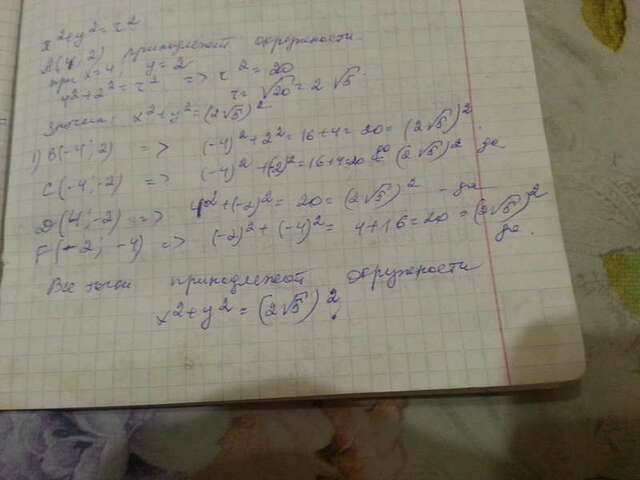 x²+y²=r²
A(4; 2) принадлежит окружности.
при x=4, y=2
4²+2²=r² => r²=20
r=√20=2√5.
Значит: x²+y²=(2√5)²
1) B(-4; 2) => (-4)²+2²=16+4=20=(2√5)².
C(-4; -2) => (-4)²+(-2)²=16+4=20=(2√5)² да
D(4; -2) => 4²+(-2)²=20=(2√5)² - да
F(-2; -4) => (-2)²+(-4)²=4+16=20=(2√5)²
да.
Все точки принадлежат окружности
x²+y²=(2√5)²